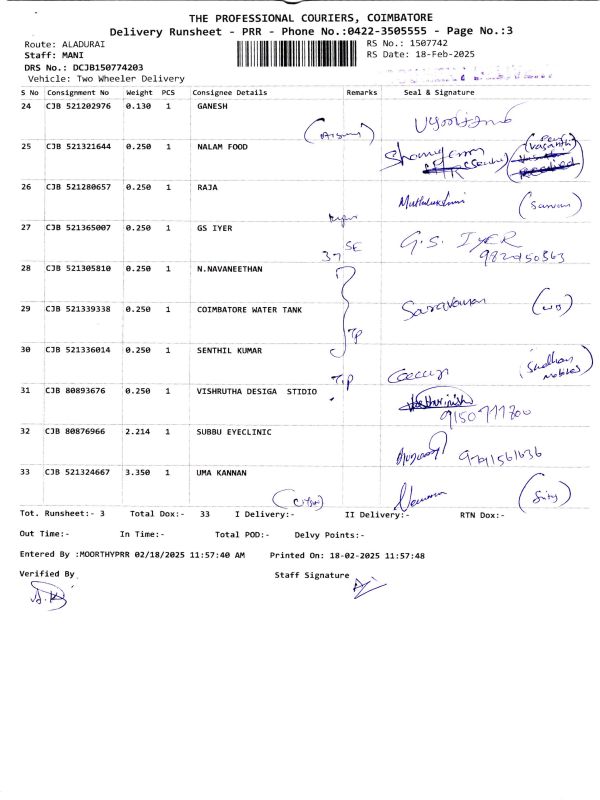 THE PROFESSIONAL COURIERS, COIMBATORE
Delivery Runsheet - PRR - Phone No.:0422-3505555 - Page No.:3
Route: ALADURAI RS No.: 1507742
Staff: MANI RS Date: 18-Feb-2025
DRS No.: DCJB150774203
Vehicle: Two Wheeler Delivery
S No Consignment No Weight PCS Consignee Details Remarks Seal & Signature
24 CJB 521202976 0.130 1 GANESH
25 CJB 521321644 0.250 1 NALAM FOOD
26 CJB 521280657 0.250 1 RAJA
27 CJB 521365007 0.250 1 GS IYER G.S. IYER
37 SE
28 CJB 521305810 0.250 1 N.NAVANEETHAN
29 CJB 521339338 0.250 1 COIMBATORE WATER TANK Saravanan
TP
30 CJB 521336014 0.250 1 SENTHIL KUMAR
T.P
31 CJB 80893676 0.250 1 VISHRUTHA DESIGA STIDIO
32 CJB 80876966 2.214 1 SUBBU EYECLINIC
33 CJB 521324667 3.350 1 UMA KANNAN
Tot. Runsheet:- 3 Total Dox:- 33 I Delivery:- II Delivery:- RTN Dox:-
Out Time:- In Time:- Total POD:- Delvy Points:-
Entered By :MOORTHYPRR 02/18/2025 11:57:40 AM Printed On: 18-02-2025 11:57:48
Verified By Staff Signature